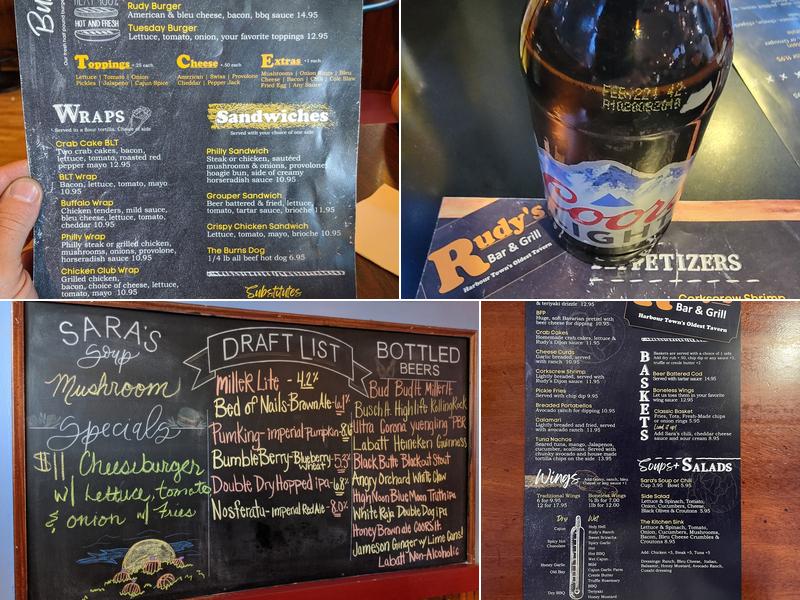 Bu
Our fresh half pound burgers
HOT AND FRESH
Rudy Burger
American & bleu cheese, bacon, bbq sauce 14.95
Tuesday Burger
Lettuce, tomato, onion, your favorite toppings 12.95
Toppings +.25 each
Lettuce | Tomato | Onion
Pickles | Jalapeño | Cajun Spice
Cheese +.50 each
American | Swiss | Provolone
Cheddar | Pepper Jack
Extras +1 each
Mushrooms | Onion Rings | Bleu
Cheese | Bacon | Chili | Cole Slaw
Fried Egg | Any Sauce
WRAPS
Served in a flour tortilla. Choice of side
Crab Cake BLT
Two crab cakes, bacon,
lettuce, tomato, roasted red
pepper mayo 12.95
BLT Wrap
Bacon, lettuce, tomato, mayo
10.95
Buffalo Wrap
Chicken tenders, mild sauce,
bleu cheese, lettuce, tomato,
cheddar 10.95
Philly Wrap
Philly steak or grilled chicken,
mushrooms, onions, provolone,
horseradish sauce 10.95
Chicken Club Wrap
Grilled chicken,
bacon, choice of cheese, lettuce,
tomato, mayo 10.95
Sandwiches
Served with your choice of one side
Philly Sandwich
Steak or chicken, sautéed
mushrooms & onions, provolone,
hoagie bun, side of creamy
horseradish sauce 10.95
Grouper Sandwich
Beer battered & fried, lettuce,
tomato, tartar sauce, brioche 11.95
Crispy Chicken Sandwich
Lettuce, tomato, mayo, brioche 10.95
The Burns Dog
1/4 lb all beef hot dog 6.95
Substitutes
FEB2221 42
Coors
LIGHT
Rudy's
Bar & Grill
Harbour Town's Oldest Tavern
APPETIZERS
Corkscrew Shrimp
SARA'S
Soup
Mushroom
Specials
$11 Cheeseburger
w/ Lettuce, tomato
& onion w/ Fries
DRAFT LIST
Miller Lite - 4.2%
Bed of Nails-Brown Ale-6.1%
Pumking-imperial Pumpkin-8.6%
BumbleBerry-Blueberry Wheat-5.3%
Double Dry Hopped ipa-6.8%
Nosferatu-imperial Red Ale-8.0%
BOTTLED
BEERS
Bud Bud lt. Miller lt.
Busch lt. High life Rolling Rock
Ultra Corona Yuengling PBR
Labatt Heineken Guinness
Black Butte Blackout Stout
Angry Orchard White Claw
High Noon Blue Moon Truth ipa
White Raja Double Dog ipa
Honey Brown ale Coors lt.
Jameson Ginger n Lime Cans!
Labatt Non-Alcoholic
& teriyaki drizzle 12.95
BFP
Huge, soft Bavarian pretzel with
beer cheese for dipping 10.95
Crab Cakes
Homemade crab cakes, lettuce &
Rudy's Dijon sauce 11.95
Cheese Curds
Lightly breaded, served with
ranch 10.95
Corkscrew Shrimp
Lightly breaded, served with
Rudy's Dijon sauce 11.95
Pickle Fries
Served with chip dip 9.95
Breaded Portabellas
Avocado ranch for dipping 10.95
Calamari
Lightly breaded and fried with
avocado ranch 11.95
Tuna Nachos
Seared tuna, mango, jalapenos,
cucumber, scallions. Served with
chunky avocado and house made
tortilla chips on the side 13.95
Bar & Grill
Harbour Town's Oldest Tavern
BASKETS
Baskets are served with a choice of 1 side
Beer Battered Cod
Served with tartar sauce 14.95
Boneless Wings
Let us toss them in your favorite
wing sauce 12.95
Classic Basket
Fries, Tots, Fresh-Made chips
or onion rings 5.95
Load it up!
Add Sara's chili, cheddar cheese
sauce and sour cream 8.95
Wings
Traditional Wings
6 for 9.95
12 for 17.95
Boneless Wings
½ lb for 7.00
1lb for 12.00
Dry
Cajun
Spicy Hot
Chocolate
Honey Garlic
Old Bay
Dry BBQ
Wet
Holy Hell
Rudy's Ranch
Sweet Sriracha
Spicy Garlic
Hot
Hot BBQ
Wet Cajun
Mild
Cajun Garlic Parm
Creole Butter
Truffle Rosemary
BBQ
Teriyaki
Honey Mustard
Soups + SALADS
Sara's Soup or Chili
Cup 3.95 Bowl 5.95
Side Salad
Lettuce & Spinach, Tomato,
Onion, Cucumber, Cheese,
Black Olives & Croutons 5.95
The Kitchen Sink
Lettuce & Spinach, Tomato,
Onion, Cucumbers, Mushrooms,
Bacon, Bleu Cheese Crumbles &
Croutons 8.95
Add: Chicken +5, Steak +5, Tuna +5
Dressings: Ranch, Bleu Cheese, Italian,
Balsamic, Honey Mustard, Avocado Ranch,